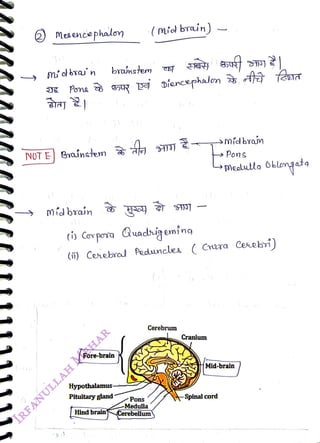 ② Mesencephalon (mid brain) –
→ midbrain brainstem का सबसे ऊपरी भाग है|
यह Pons के ऊपर एवं Diencephalon के नीचे स्थित
होता है|
NOTE Brainstem के तीन भाग हैं → midbrain
→ Pons
→ medulla Oblongata
→ midbrain के मुख्य दो भाग –
(i) Corpora Quadrigemina
(ii) Cerebral Peduncles ( Crura Cerebri)
Cerebrum
Cranium
Fore-brain
Mid-brain
Hypothalamus
Pituitary gland
Spinal cord
Pons
Medulla
Hind brain
Cerebellum